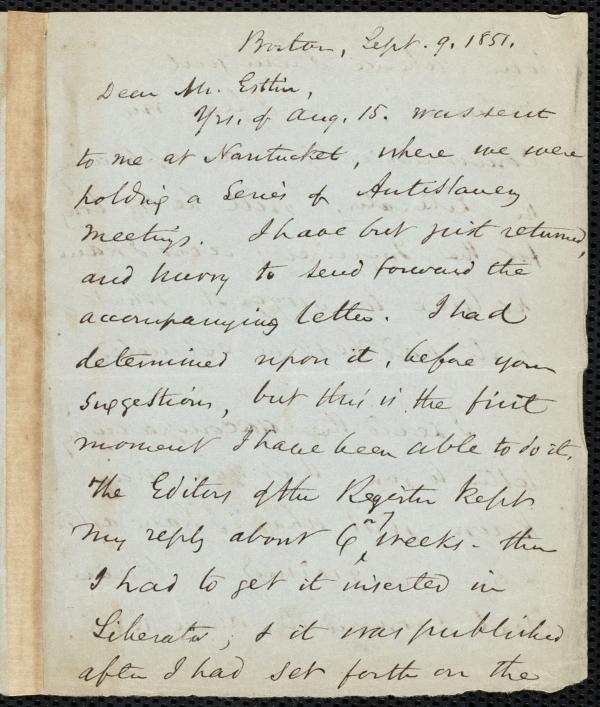 Boston, Sept. 9, 1851.
Dear Mr. Estlin,
Yrs. of Aug. 15. was sent
to me at Nantucket, where we were
holding a series of Antislavery
meetings. I have but just returned,
and hurry to send forward the
accompanying letter. I had
determined upon it, before your
suggestion, but this is the first
moment I have been able to do it.
The Editors of the Register kept
my reply about 6 or 7 weeks - then
I had to get it inserted in
Liberator, & it was published
after I had set forth on the